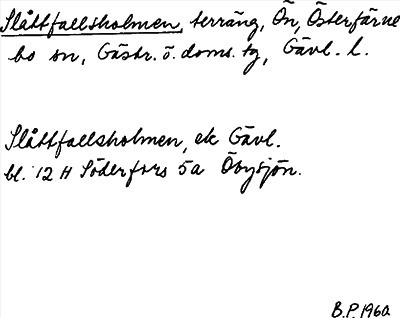 Slåttfallsholmen, terräng, Ön, Österfärne
bo sn, Gästr. ö. doms. tg, Gävl. l.
Slåttfallsholmen, ek Gävl.
bl. 12 H Söderfors 5a Öbysjön.
B.P. 1960